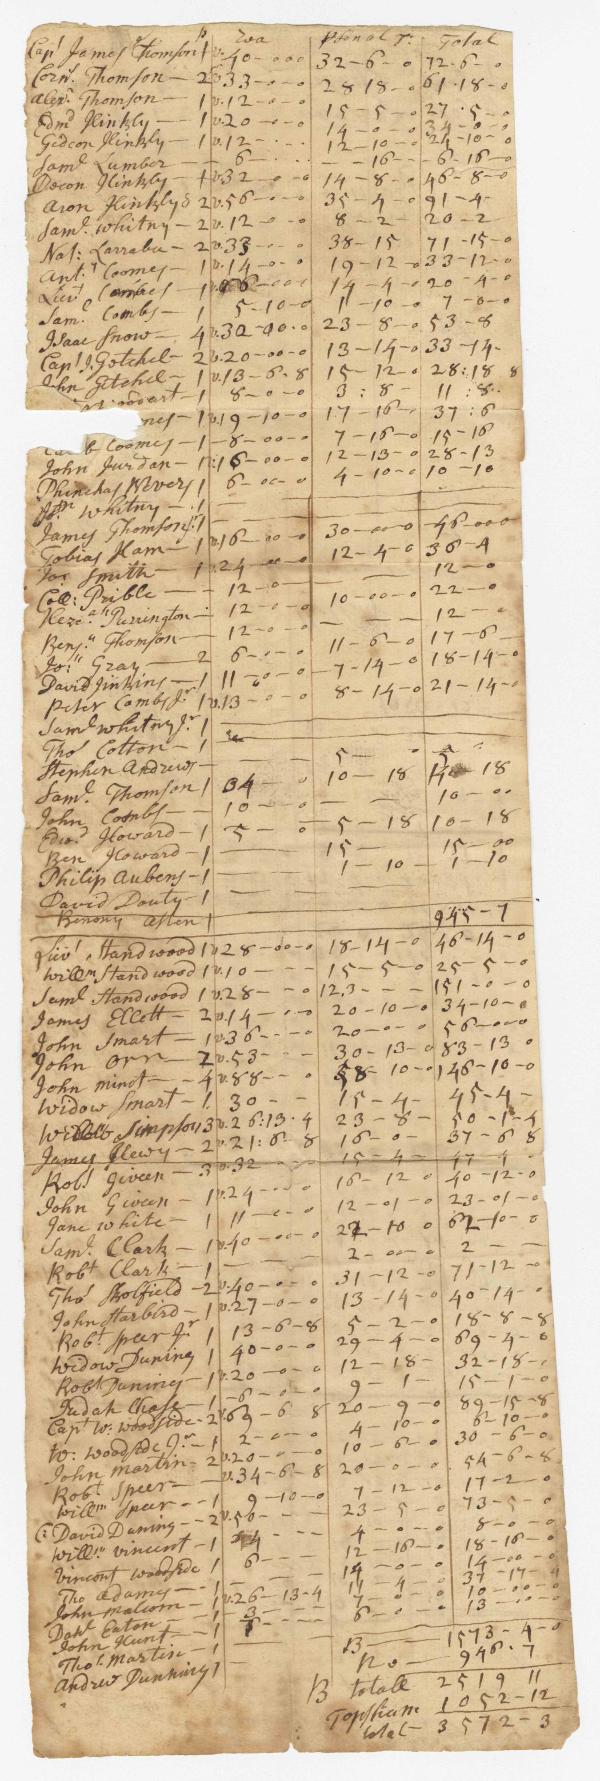 p Rea Psonal Total
Capt James Thomson 1 v. 40-00-0 32-6-0 72-6-0
Corns. Thomson — 2 v. 33-0-0 28-18-0 61-18-0
Alexr. Thomson — 1 v. 12-0-0 15-5-0 27-5-0
Edmd Hinkly — 1 v. 20-0-0 14-0-0 34-0-0
Gideon Hinkly — 1 v. 12 12-10-0 24-10-0
Saml. Lumber — 6 — 16-0 6-16-0
Decon Hinkly — 1 v. 32-0-0 14-8-0 46-8-0
Aron Hinkly 2 v. 56-0-0 35-4-0 91-4-
Saml. Whitny — 2 v. 12-0-0 8-2- 20-2
Nat: Larrabe — 2 v. 33-0-0 38-15 71-15-0
Anty Coomes — 1 v. 14-0-0 19-12-0 33-12-0
Livt Combes — 1 14-4-0 20-4-0
Saml. Combs — 1 5-10-0 1-10-0 7-0-0
Isaac Snow — 4 v. 30-00-0 23-8-0 53-8
Capt J. Gotchel — 2 v. 20-00-0 13-14-0 33-14-
John Gotchel — 1 v. 13-6-8 15-12-0 28:18 8
1 8-0-0 3:8- 11:8-
mes — 1 v. 19-10-0 17-16-0 37:6
Coomes — 1 -8-00-0 7-16-0 15-16
John Jurdan — 1 : 16-00-0 12-13-0 28-13
Phinehas Nevers 1 6-00-0 4-10-0 10-10
Whitny — 1
James Thomson 1 v. 16-00-0 30-00-0 46-00-0
Tobias Ham — 1 12-4-0 36-4
Smith — 1 v. 24-00-0 12-0
Coll: Prible — 12-0 10-00-0 22-0
Heze.ah Purrington 12-0-0 12-0
Benj.n Thomson 12-0-0 11-6-0 17-6-
Jo.n Gray — 2 6-0-0 7-14-0 18-14-0
David Jinkins — 1 11-0-0 8-14-0 21-14-0
Peter Combs Jr 1 v. 13-0-0
Saml Whitny Jr 1
Thos Cotton — 1
Stephen Andrews — 5 — 0 5
Saml. Thomson 1 34 — 0 10 — 18 18
John Combs — 10-0 10-00
Edwd Howard — 1 5-0 5-18 10-18
Ben Howard — 1 15 — 15-00
Philip Aubens — 1 1-10 1-10
David Douty — 1
Benony Asten 1 945-7
Livt Standwood 1 v. 28-00-0 18-14-0 46-14-0
Willm Standwood 1 v. 10 15-5-0 25-5-0
Saml Standwood 1 v. 28-0 12.3 151-0-0
James Ellett — 2 v. 14-0 20-10-0 34-10-0
John Smart — 1 v. 36 20-0-0 56-0-0
John Orr — 2 v. 53 30-13-0 83-13 0
John minot — 4 v. 88 58-10-0 146-10-0
Widow Smart — 1. 30 15-4- 45-4-
Simpson 3 v. 26:13-4 23-8- 50-1-4
James 2 v. 21:6-8 16-0- 37-6 8
Robt Given — 3 v. 32 15-4- 47-4
John Given — 1 v. 24 16-12 0 40-12-0
Jane White — 1 11 12-01-0 23-01-0
Saml. Clark — 1 v. 40 22-10 0 62-10-0
Robt Clark — 1 2-00-0 2
Thos Skolfield — 2 v. 40-0 31-12-0 71-12-0
John Starbird — 1 v. 27-0-0 13-14-0 40-14-0
Robt Speer Jr 1 13-6-8 5-2-0 18-8-8
Widow Duning 1 40-0-0 29-4-0 69-4-0
Robt Duning — 1 v. 20-0-0 12-18- 32-18-
Judah Chase — 1 6-0-0 9-1- 15-1-0
Capt W: Woodside — 2 v. 69-6 8 20-9-0 89-15-8
W: Woodside Jr — 1 2-0-0 4-10-0 6-10-0
John Martin — 2 v. 20-0-0 10-6-0 30-6-0
Robt Speer — v. 34-6-8 20-0-0 54-6-8
Willm Speer — 1 9-10-0 7-12-0 17-2-0
David Duning — 2 v. 50 23-5-0 73-5-0
Willm Vincent — 1 4 4-0-0 8-0-0
Vincent Woodside 1 6 12-16-0 18-16-0
Tho Adams — 1 14-0-0 14-00-0
John Malcom — 1 v. 26-13-4 11-4-0 37-17-4
Danl. Eaton — 1 3 7-0-0 10-00-0
John Hunt — 1 6-0-0 13-0-0
Thos. Martin — 1 B 1573-4-0
Andrew Dunning 1 No — 946-7
B totall 2519 11
Topsham 1052-12
total — 3572-3